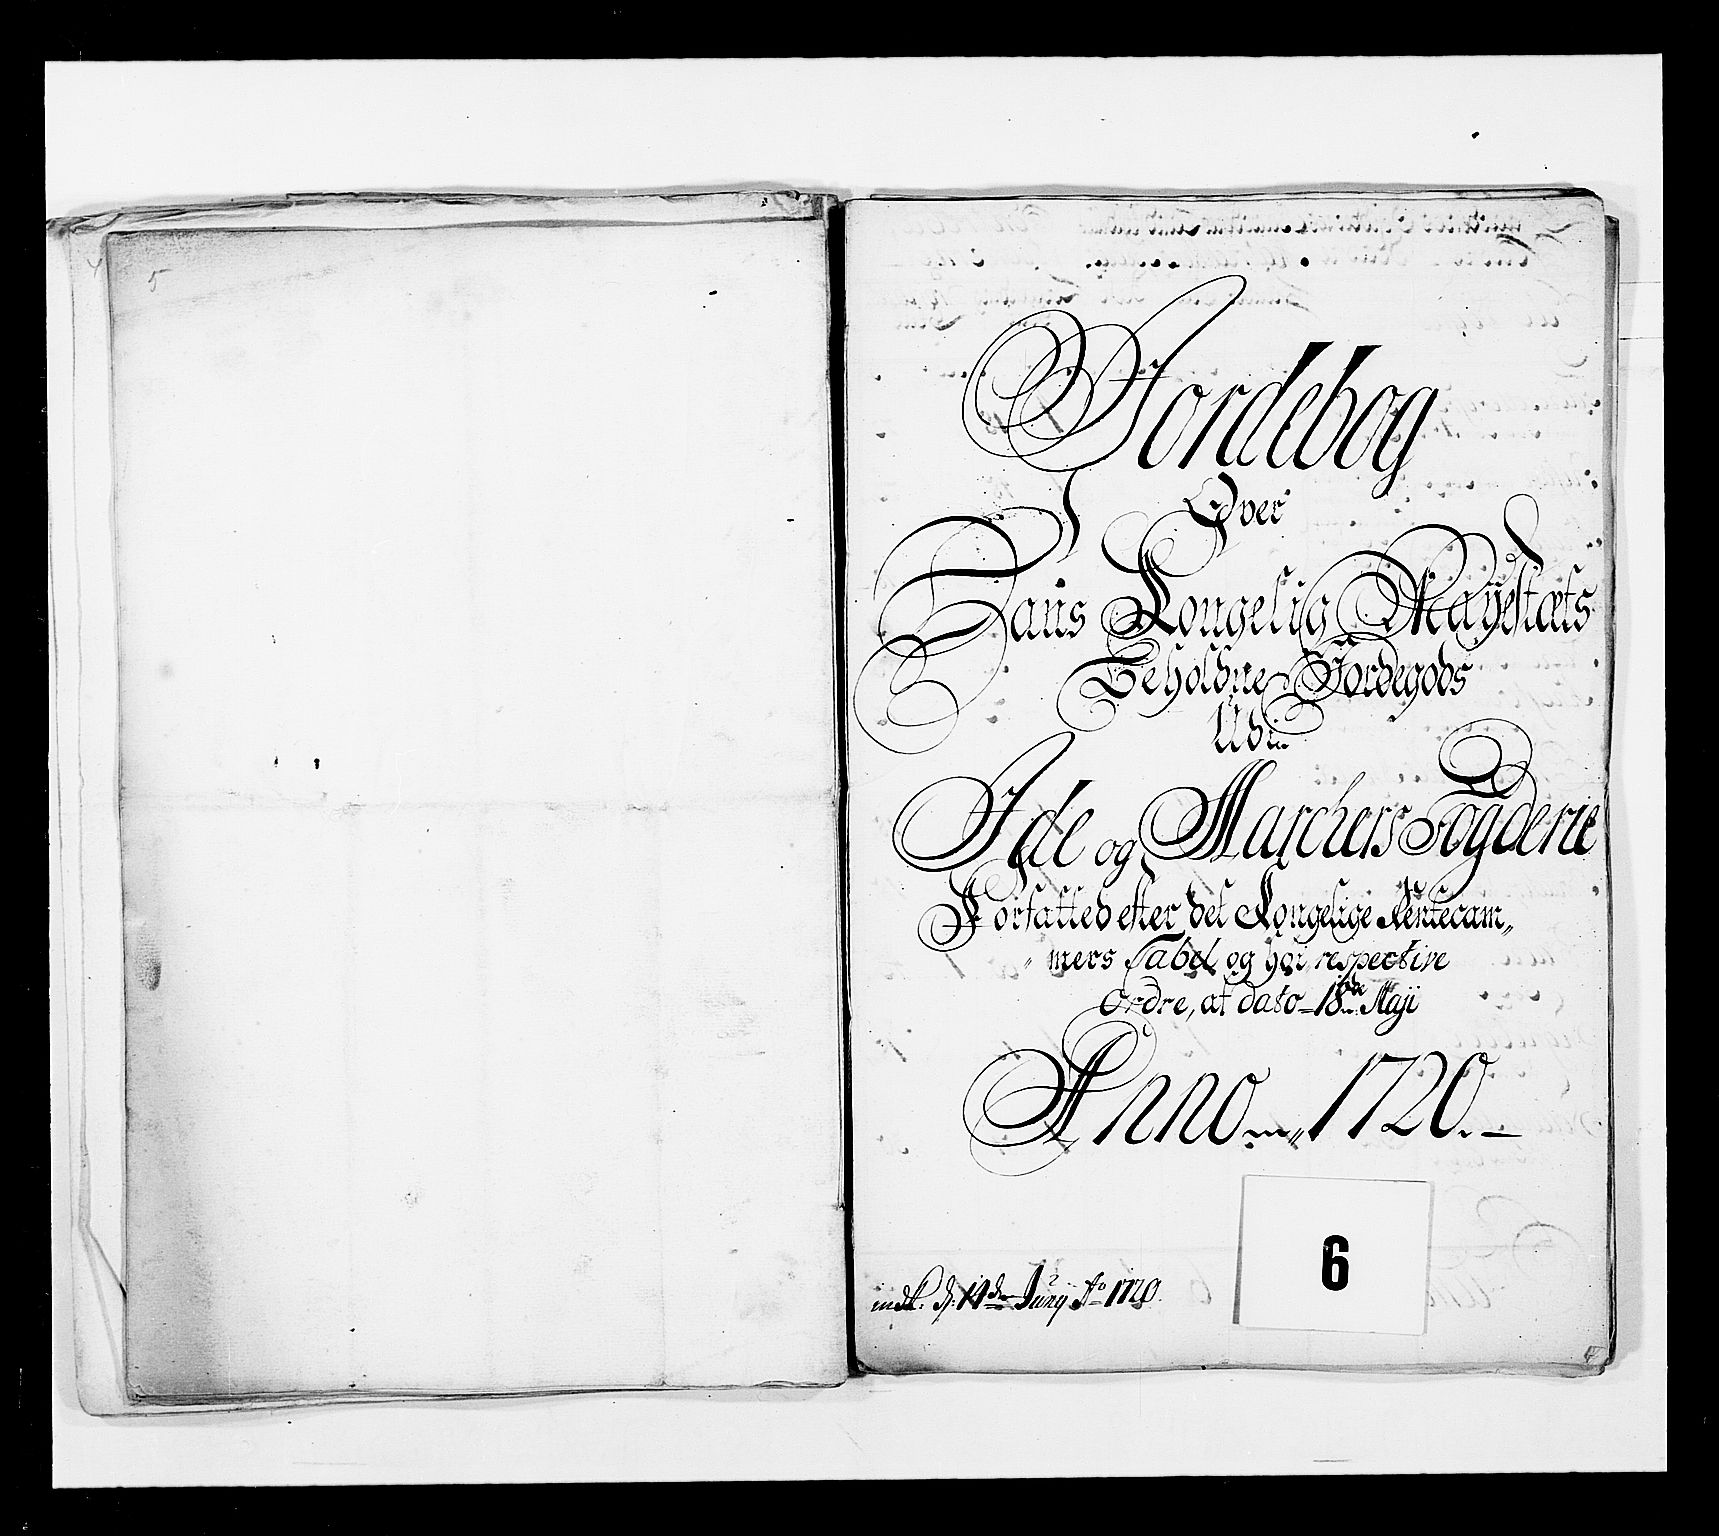 5
Jordebog
Over
Hans Kongelig Mayestæts
Beholdne Jordegods
Udi
Ide og Marchers Fogderie
Forfatted efter det Kongelige Rentecam„
mers Tabel og hoi respective
Ordre, af dato 18de Maji
Anno 1720.
6
indl. d: 14de Juny Ao 1720.